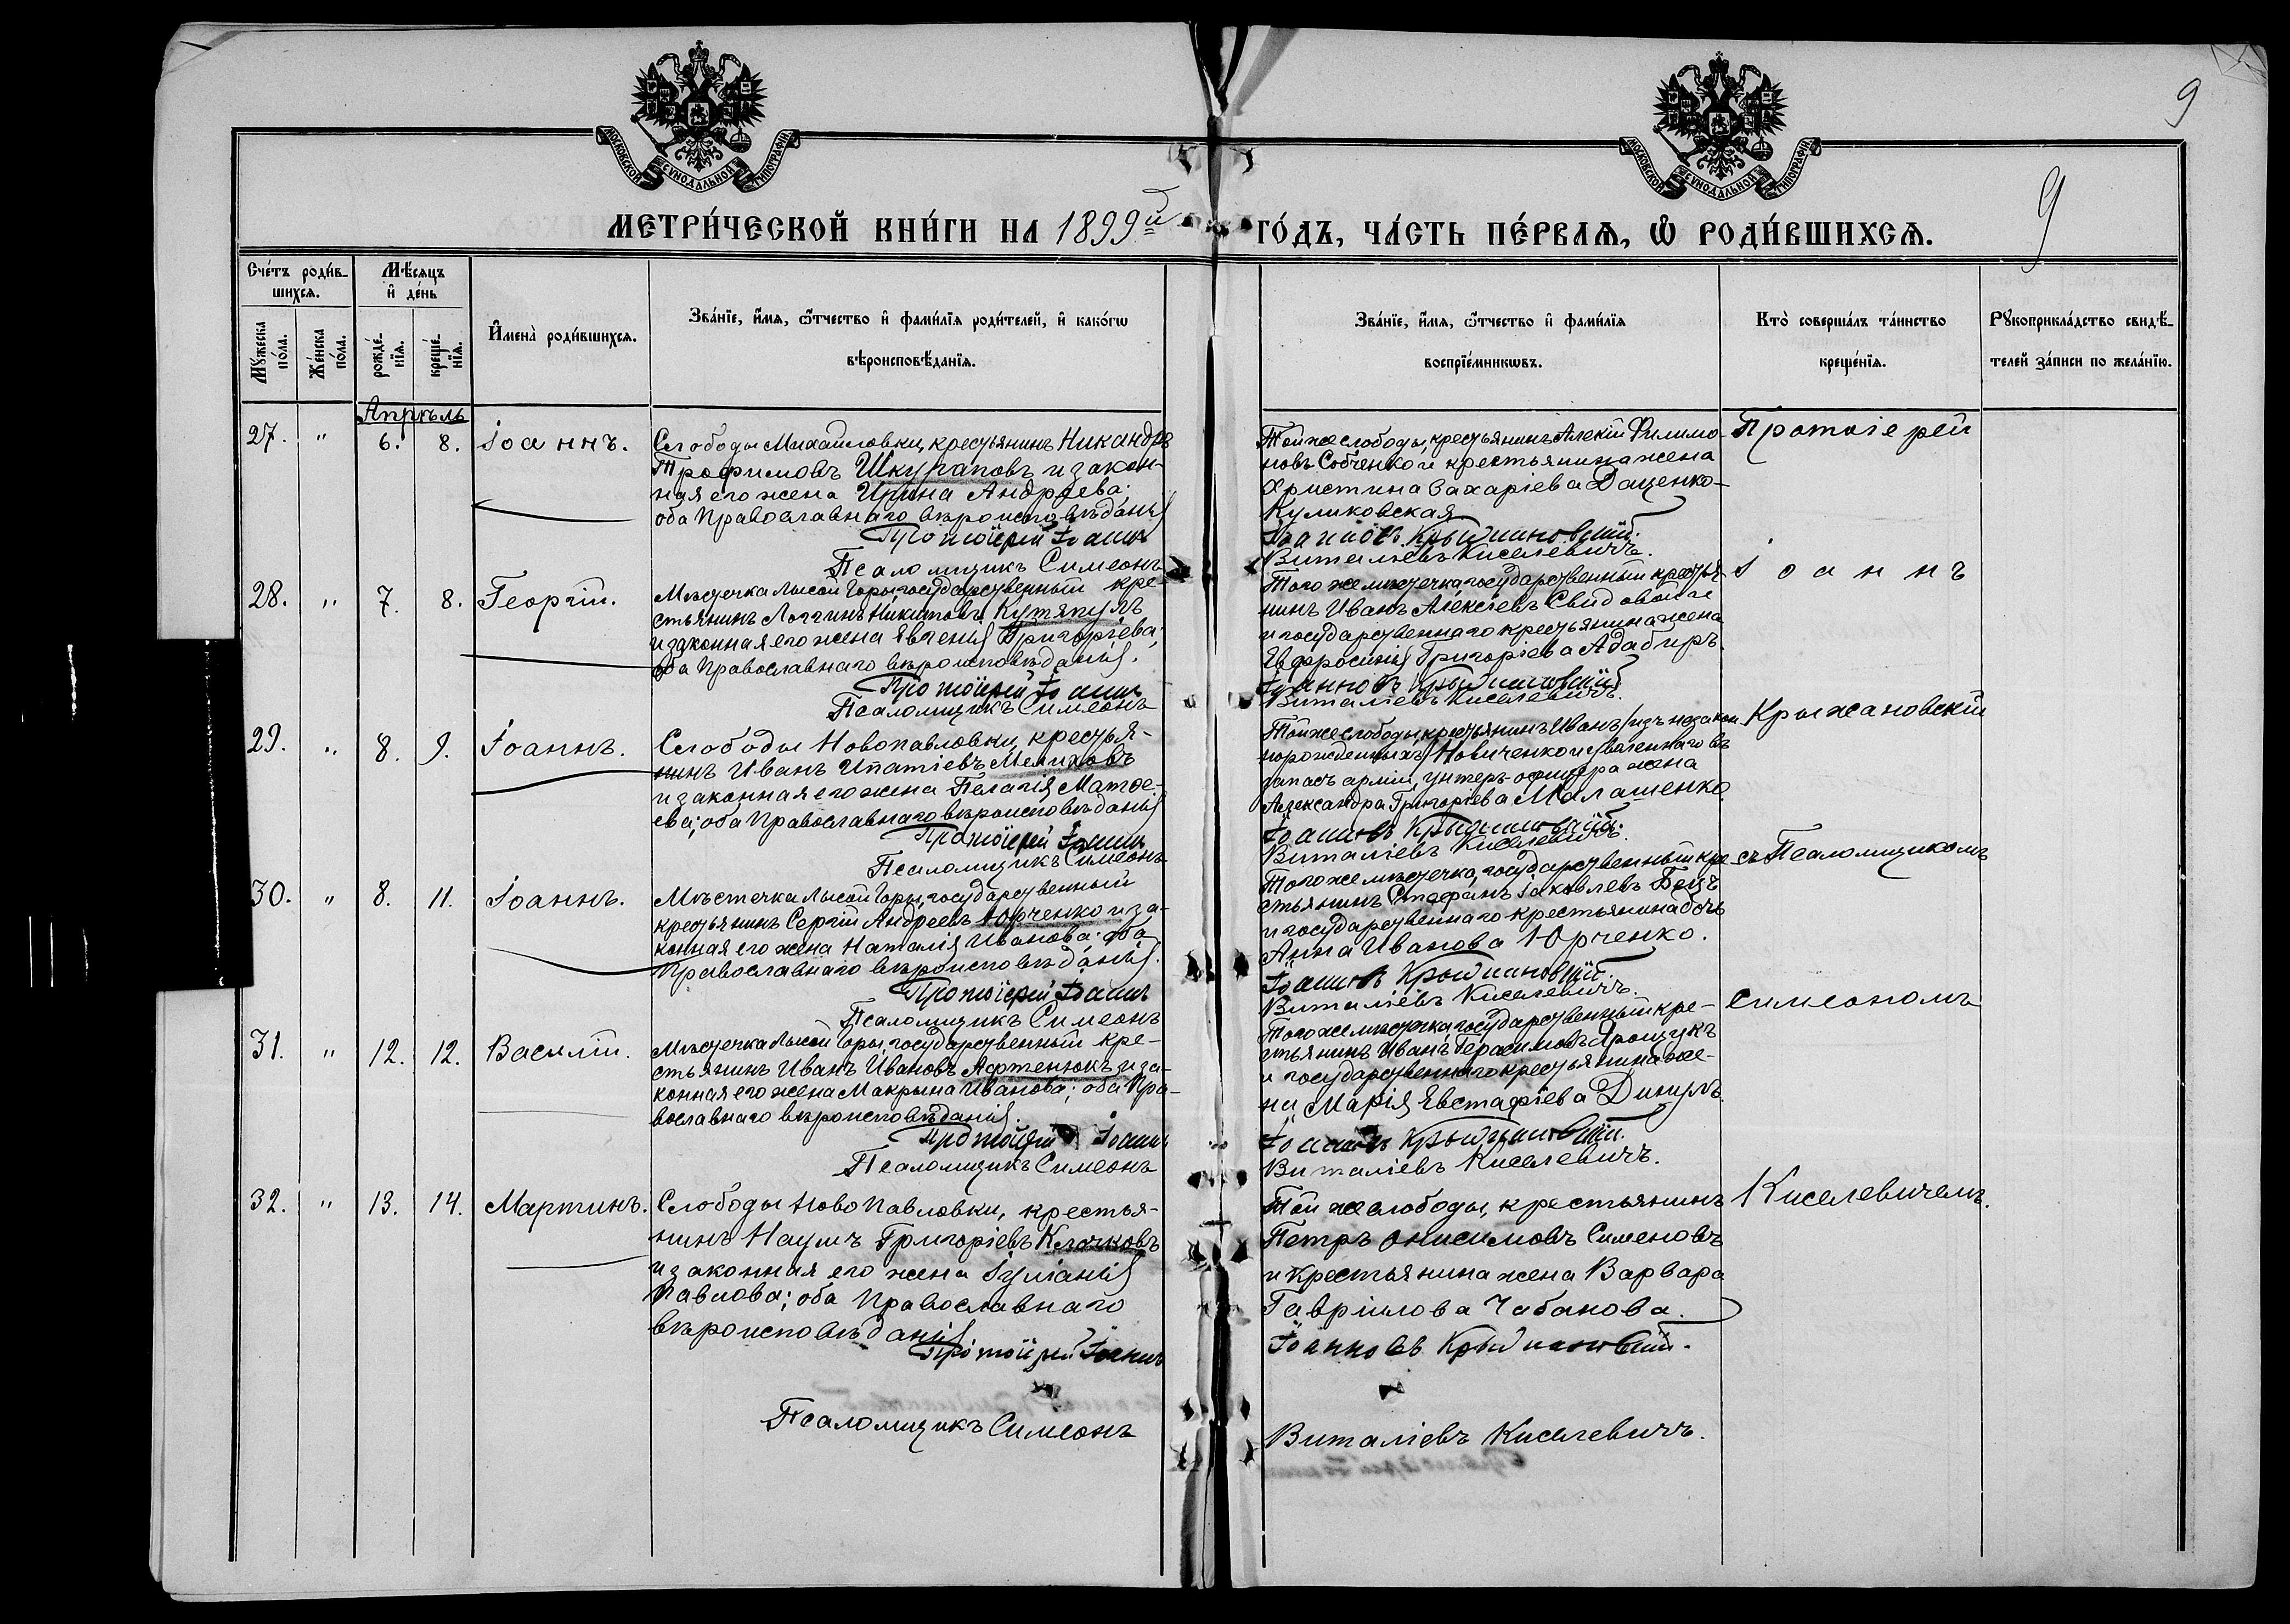 9
МОСКОВСКОЙ СУНОДАЛЬНОЙ ТИПОГРАФІИ
МОСКОВСКОЙ СУНОДАЛЬНОЙ ТИПОГРАФІИ
9
МЕТРИ́ЧЕСКОЙ КНИ́ГИ НА 1899й ГО́ДЪ, ЧА́СТЬ ПЕ́РВАѦ, Ѡ РОДИ́ВШИХСѦ.
Сче́тъ роди́в-
шихсѧ.
Мѣ́сѧцъ
и де́нь
Мꙋ́жеска по́ла.
Же́нска по́ла.
рожде́-
нїѧ.
креще́-
нїѧ.
Имена̀ роди́вшихсѧ.
Зва́нїе, и́мѧ, ѻ́тчество и фами́лїѧ роди́телей, и како́гѡ
вѣроисповѣ́данїѧ.
Зва́нїе, и́мѧ, ѻ́тчество и фами́лїѧ
воспрїе́мникѡвъ.
Кто̀ соверша́лъ та́инство
креще́нїѧ.
Рꙋкоприкла́дство свидѣ́-
телей за́писи по жела́нїю.
Апрѣль
27. " 6. 8. Іоаннъ.
Слободы Михайловки, крестьянинъ Никандръ
Трофимовъ Шкураповъ и закон-
ная его жена Ирина Андреева;
оба Православнаго вѣроисповѣданія
Протоіерей Іоаннъ
Псаломщикъ Симеонъ
Той же слободы, крестьянинъ Алексій Филимо-
новъ Собченко и крестьянина жена
Христина Захаріева Даценко-
Куликовская
Іоанновъ Крыжановскій.
Виталіевъ Киселевичъ.
Протоіерей
28. " 7. 8. Георгій.
Мѣстечка Лысой Горы, государственный кре-
стьянинъ Логгинъ Никитовъ Кутякулъ
и законная его жена Евгенія Григоріева;
оба Православнаго вѣроисповѣданія.
Протоіерей Іоаннъ
Псаломщикъ Симеонъ
Того же мѣстечка, государственный крестья-
нинъ Иванъ Алексіевъ Свидовой
и государственнаго крестьянина жена
Евфросинія Григоріева Адабиръ.
Іоанновъ Крыжановскій
Виталіевъ Киселевичъ.
Іоаннъ
29. " 8. 9. Іоаннъ.
Слободы Новопавловки, крестья-
нинъ Иванъ Ипатіевъ Мелиховъ
и законная его жена Пелагія Матѳе-
ева; оба Православнаго вѣроисповѣданія
Протоіерей Іоаннъ
Псаломщикъ Симеонъ
Той же слободы, крестьянинъ Иванъ (изъ незакон-
норожденныхъ) Новиченко и уволеннаго въ
запасъ арміи, унтеръ-офицера жена
Александра Григоріева Малашенко.
Іоанновъ Крыжановскій.
Виталіевъ Киселевичъ.
Крыжановскій
30. " 8. 11. Іоаннъ.
Мѣстечка Лысой Горы, государственный
крестьянинъ Сергій Андреевъ Юрченко и за-
конная его жена Наталія Иванова; оба
Православнаго вѣроисповѣданія.
Протоіерей Іоаннъ
Псаломщикъ Симеонъ
Того же мѣстечка, государственный кре-
стьянинъ Стефанъ Іаковлевъ Бецъ
и государственнаго крестьянина дочь
Анна Иванова Юрченко.
Іоанновъ Крыжановскій.
Виталіевъ Киселевичъ.
съ Псаломщикомъ
31. " 12. 12. Василій.
Мѣстечка Лысой Горы, государственный кре-
стьянинъ Иванъ Ивановъ Афтенюкъ и за-
конная его жена Макрына Иванова; оба Пра-
вославнаго вѣроисповѣданія.
Протоіерей Іоаннъ
Псаломщикъ Симеонъ
Того же мѣстечка, государственный кре-
стьянинъ Иванъ Герасимовъ Прощукъ
и государственнаго крестьянина же-
на Марія Евстафіева Дикулъ.
Іоанновъ Крыжановскій.
Виталіевъ Киселевичъ.
Симеономъ
32. " 13. 14. Мартинъ.
Слободы Ново Павловки, крестья-
нинъ Наумъ Григоріевъ Клочковъ
и законная его жена Іуліанія
Павлова; оба Православнаго
вѣроисповѣданія
Протоіерей Іоаннъ
Псаломщикъ Симеонъ
Той же слободы, крестьянинъ
Петръ Онисимовъ Сименовъ
и крестьянина жена Варвара
Гавріилова Чабанова.
Іоанновъ Крыжановскій.
Виталіевъ Киселевичъ.
Киселевичемъ.